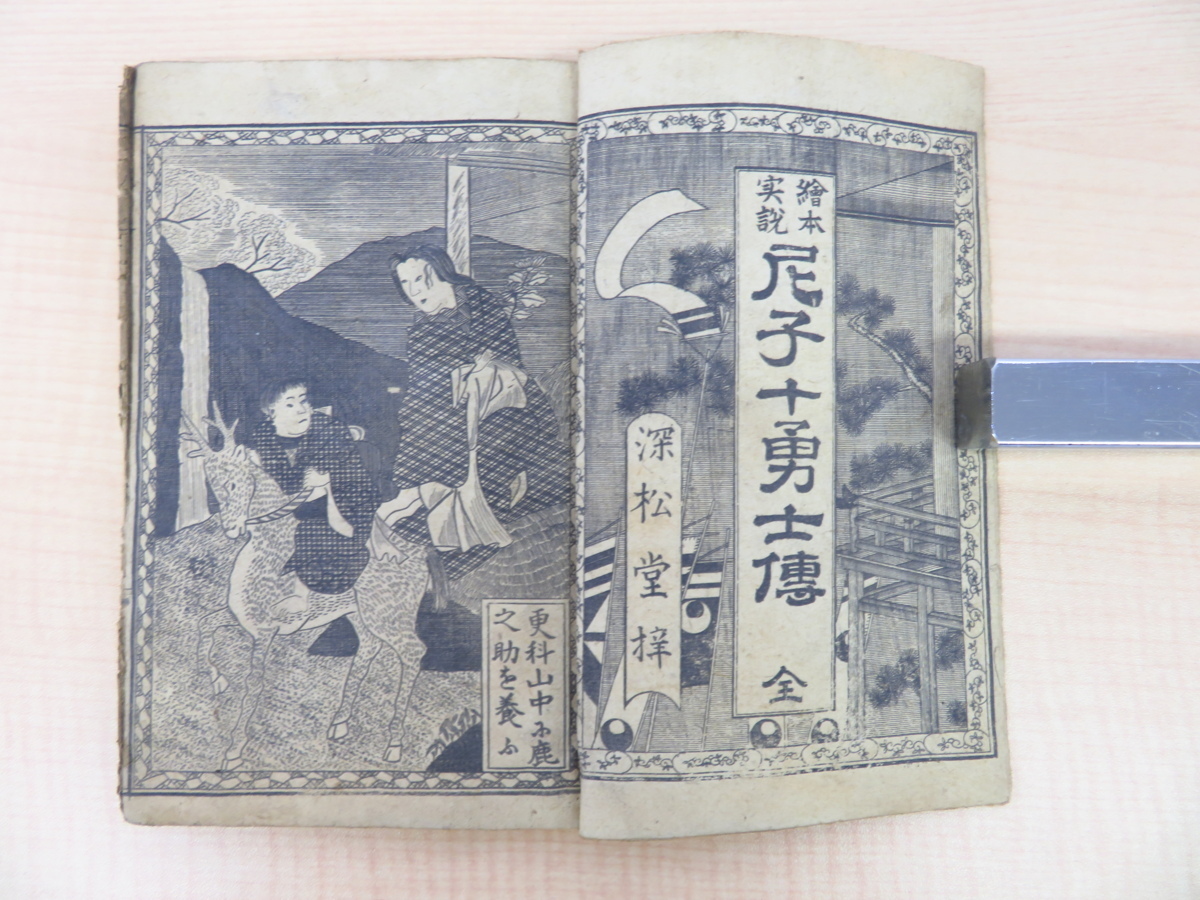 繪本
実説
尼子十勇士傳
全
深松堂梓
更科山中に鹿
之助を養ふ